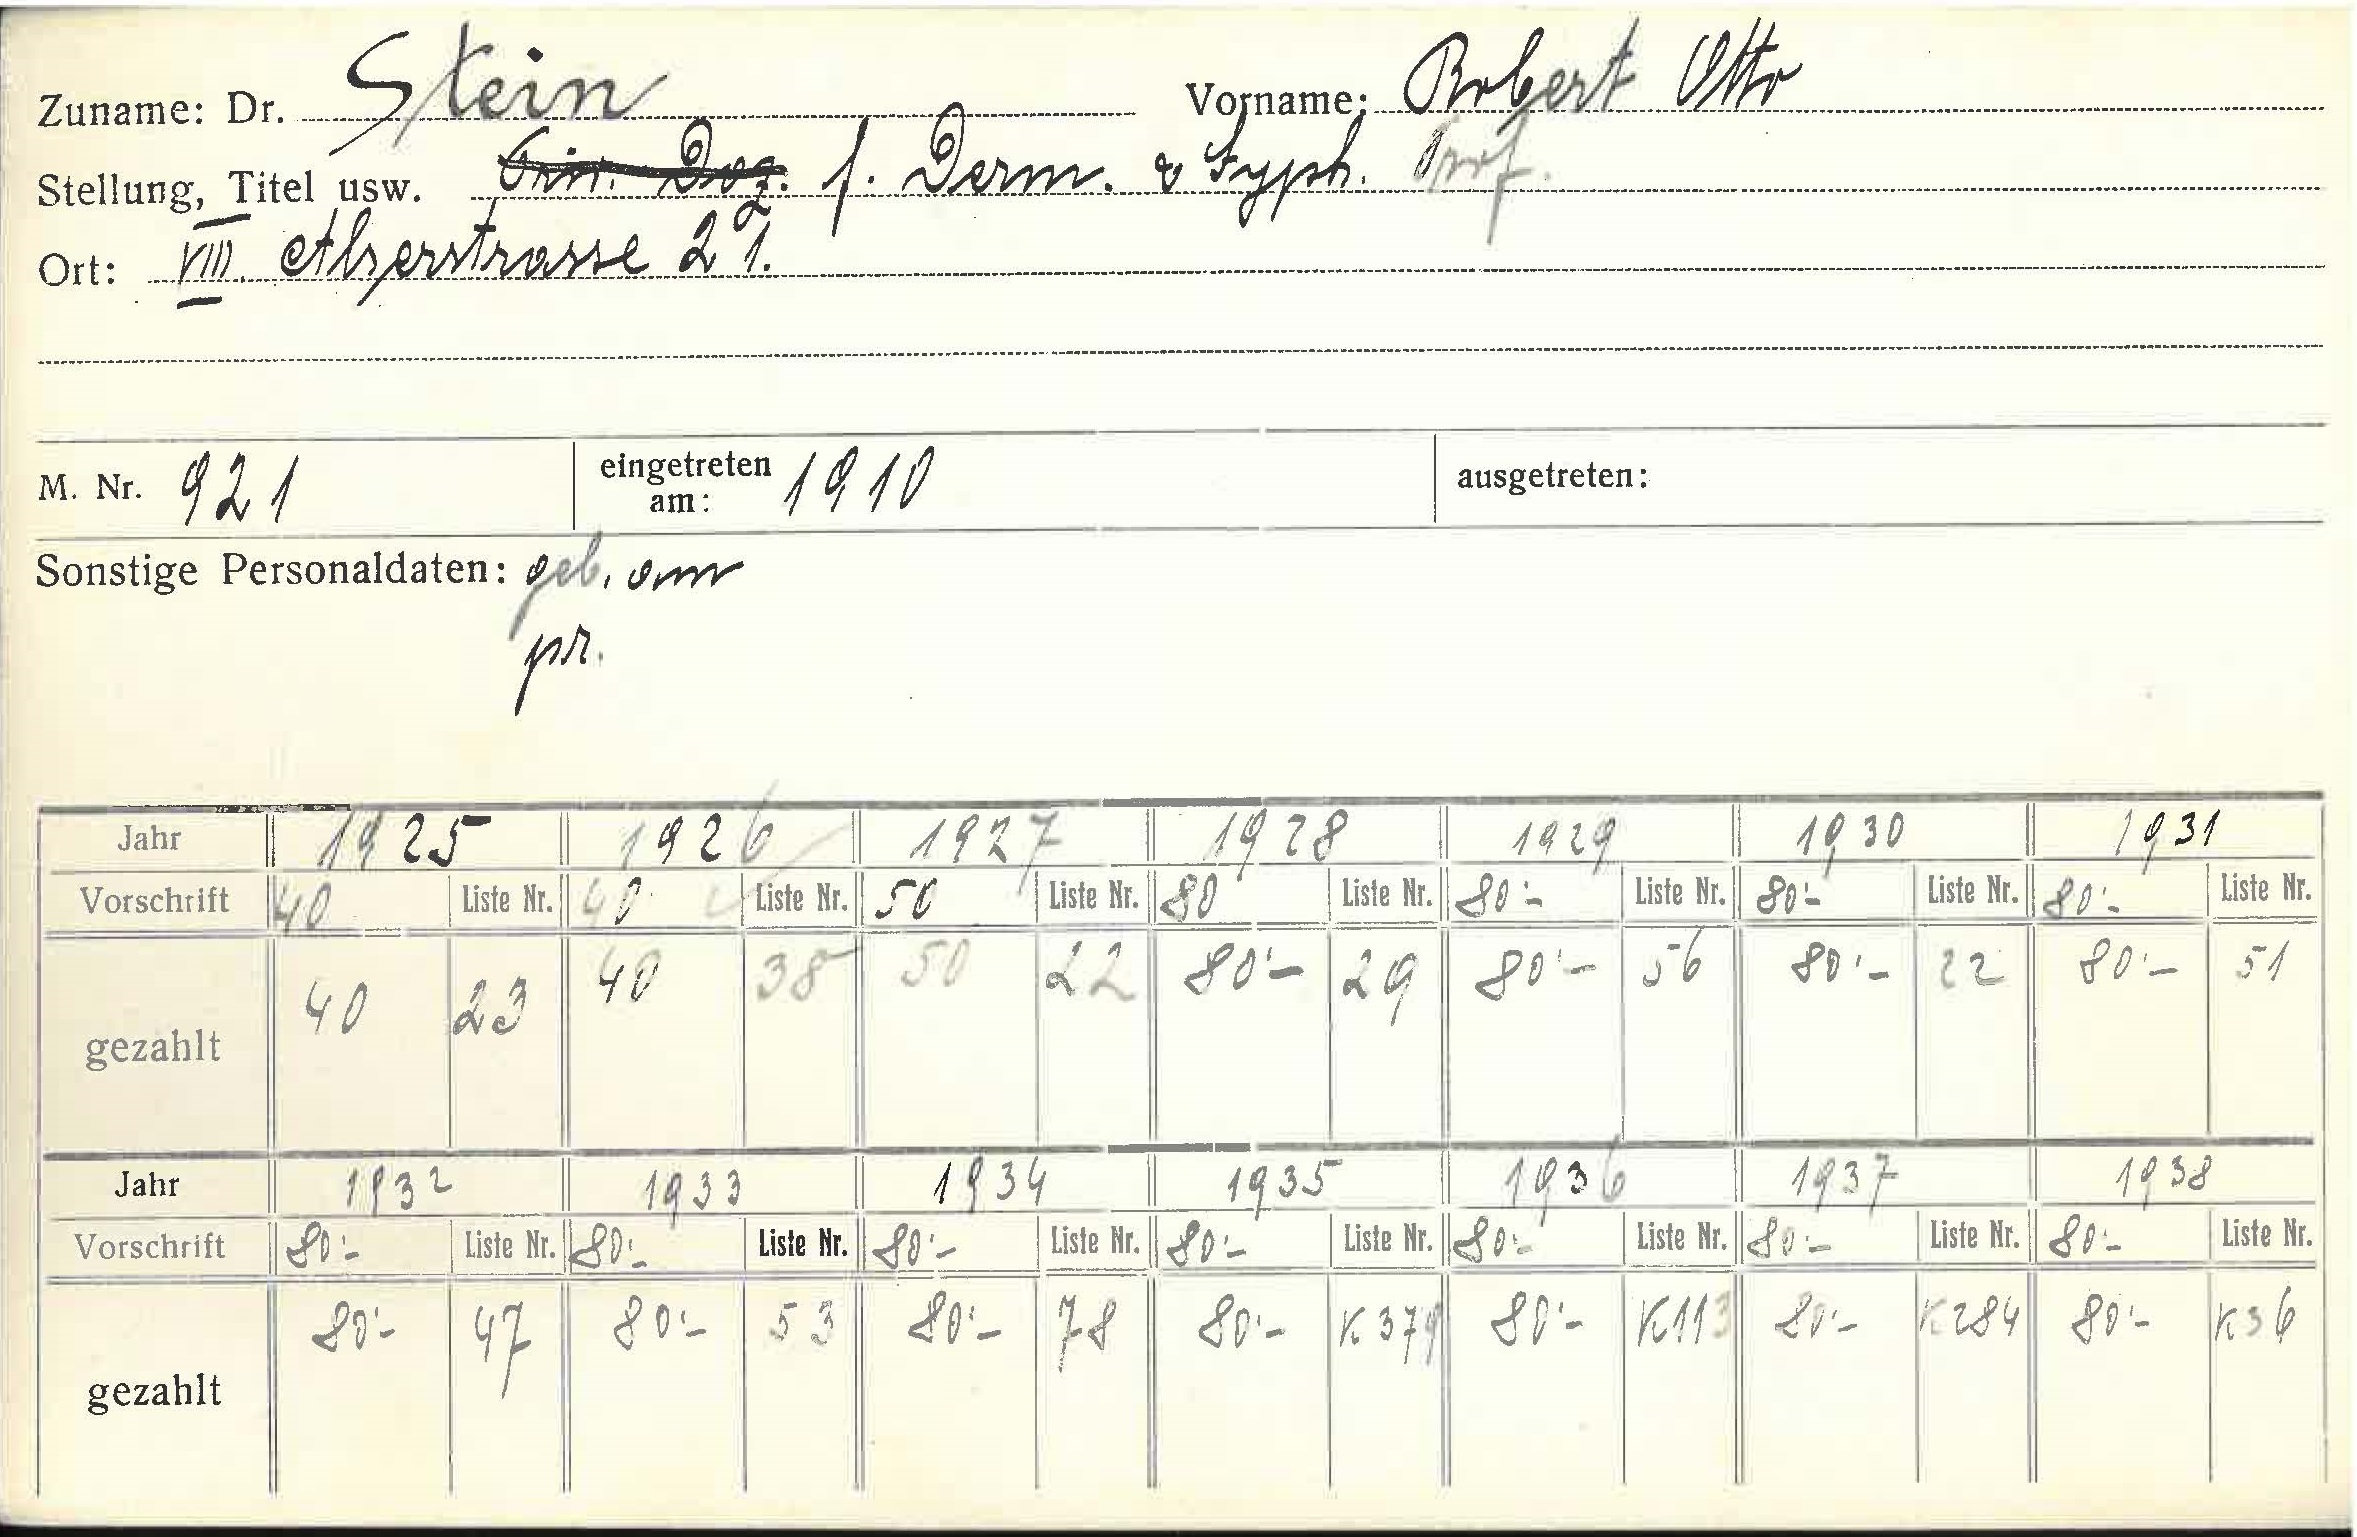 Zuname: Dr. Stein Vorname: Robert Otto
Stellung, Titel usw. Priv. Doz. f. Derm. & Syph. Prof.
Ort: VIII. Alserstrasse 21.
M. Nr. 921 eingetreten am: 1910 ausgetreten:
Sonstige Personaldaten: geb. am
pr.
Jahr 1925 1926 1927 1928 1929 1930 1931
Vorschrift 40 Liste Nr. 40 Liste Nr. 50 Liste Nr. 80 Liste Nr. 80'- Liste Nr. 80'- Liste Nr. 80'- Liste Nr.
gezahlt 40 23 40 38 50 22 80'- 29 80'- 56 80'- 22 80'- 51
Jahr 1932 1933 1934 1935 1936 1937 1938
Vorschrift 80'- Liste Nr. 80'- Liste Nr. 80'- Liste Nr. 80'- Liste Nr. 80'- Liste Nr. 80'- Liste Nr. 80'- Liste Nr.
gezahlt 80'- 47 80'- 53 80'- 78 80'- K 379 80'- K113 80'- K284 80'- K36